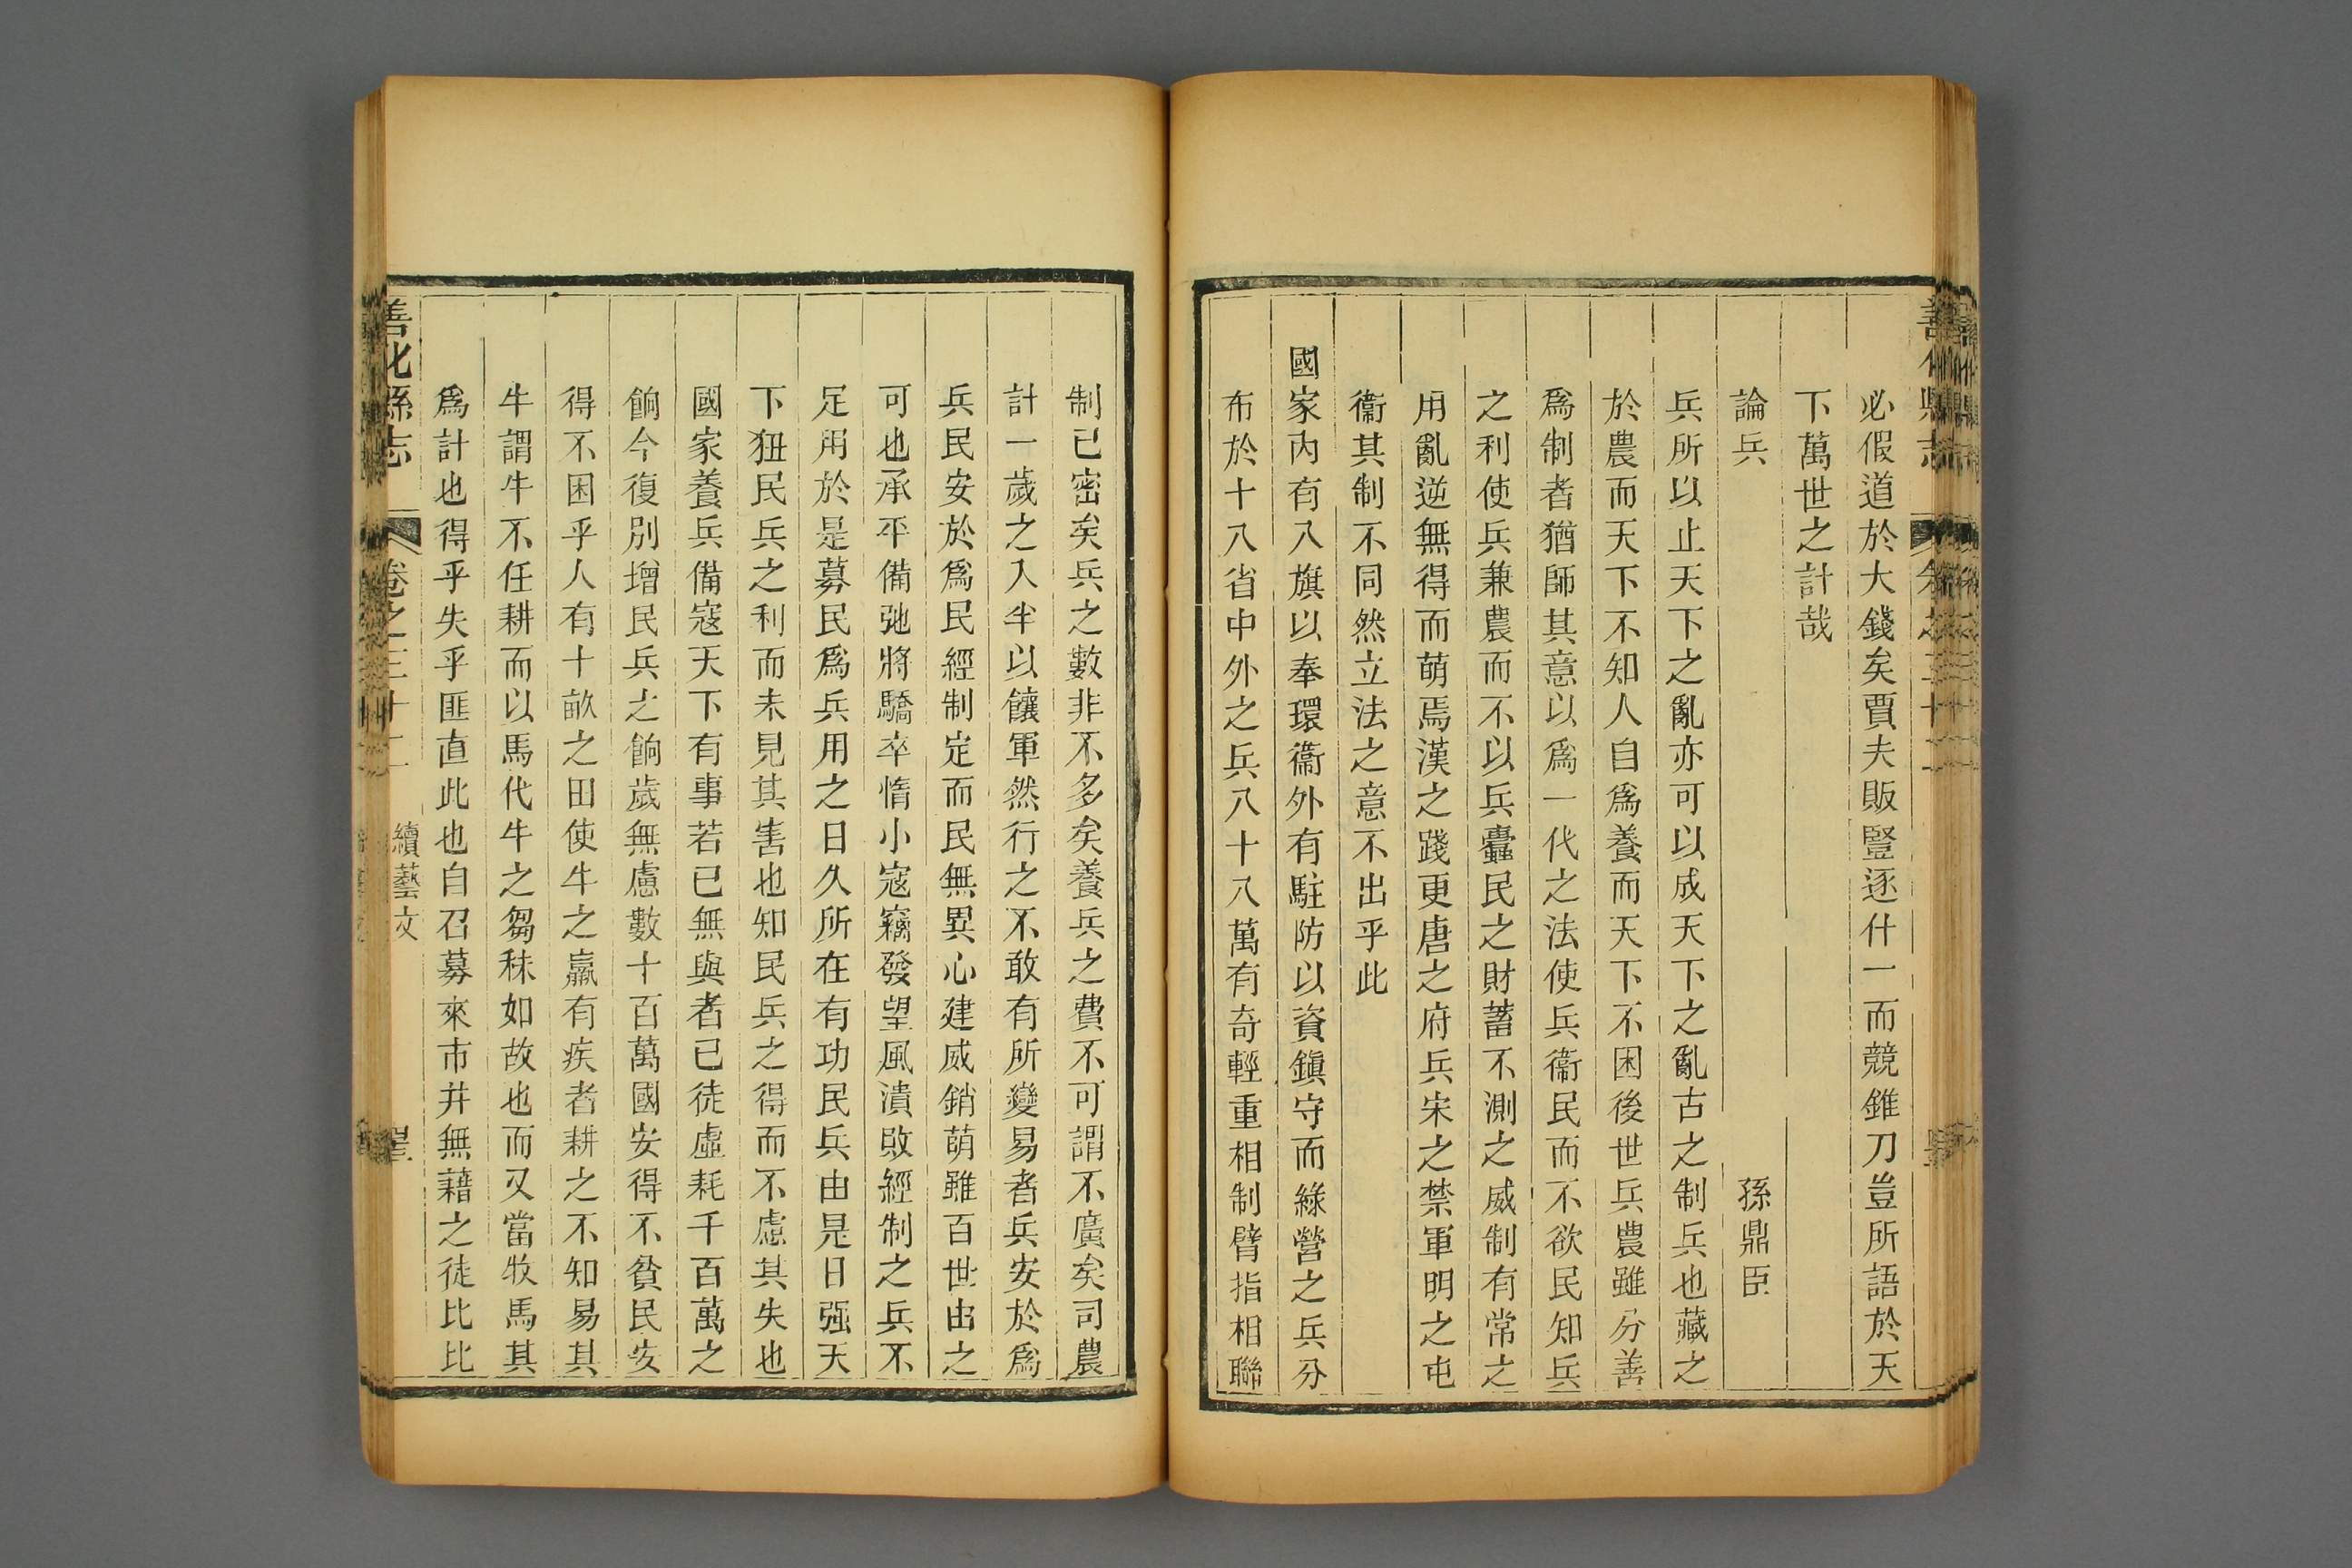 必假道於大錢矣賈夫販豎逐什一而競錐刀豈所語於天
下萬世之計哉
論兵　孫鼎臣
兵所以止天下之亂亦可以成天下之亂古之制兵也藏之
於農而天下不知人自爲養而天下不困後世兵農雖分善
爲制者猶師其意以爲一代之法使兵衞民而不欲民知兵
之利使兵兼農而不以兵蠹民之財蓄不測之威制有常之
用亂逆無得而萌焉漢之踐更唐之府兵宋之禁軍明之屯
衞其制不同然立法之意不出乎此
國家內有八旗以奉環衞外有駐防以資鎭守而綠營之兵分
布於十八省中外之兵八十八萬有奇輕重相制臂指相聯
制已密矣兵之數非不多矣養兵之費不可謂不廣矣司農
計一歲之入半以饟軍然行之不敢有所變易者兵安於爲
兵民安於爲民經制定而民無異心建威銷萌雖百世由之
可也承平備弛將驕卒惰小寇竊發望風潰敗經制之兵不
足用於是募民爲兵用之日久所在有功民兵由是日强天
下狃民兵之利而未見其害也知民兵之得而不慮其失也
國家養兵備寇天下有事若已無與者已徒虛耗千百萬之
餉今復別增民兵之餉歲無慮數十百萬國安得不貧民安
得不困乎人有十畝之田使牛之羸有疾者耕之不知易其
牛謂牛不任耕而以馬代牛之芻秣如故也而又當牧馬其
爲計也得乎失乎匪直此也自召募來市井無藉之徒比比
善化縣志　卷之三十二　續藝文